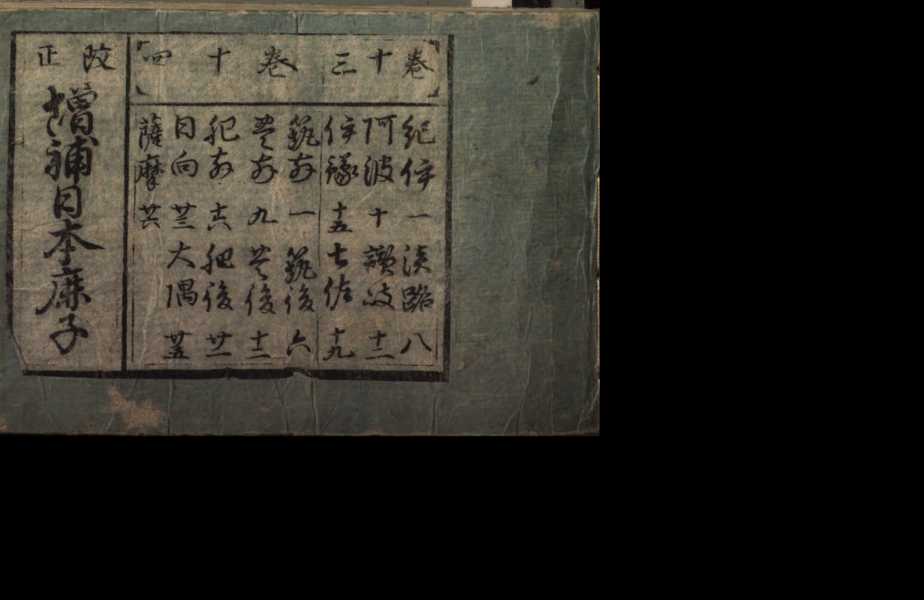 卷十三
紀伊 一 淡路 八
阿波 十 讃岐 十二
伊豫 十五 土佐 十九
卷十四
筑前 一 筑後 六
豊前 九 豊後 十二
肥前 十六 肥後 廿一
日向 廿三 大隅 廿五
薩摩 廿六
改正
増補日本鹿子